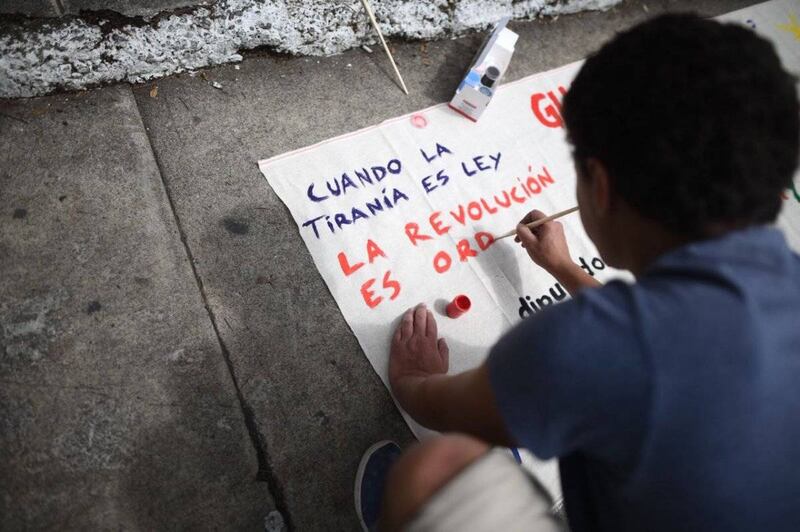 CUANDO LA
TIRANÍA ES LEY
LA REVOLUCIÓN
ES ORD